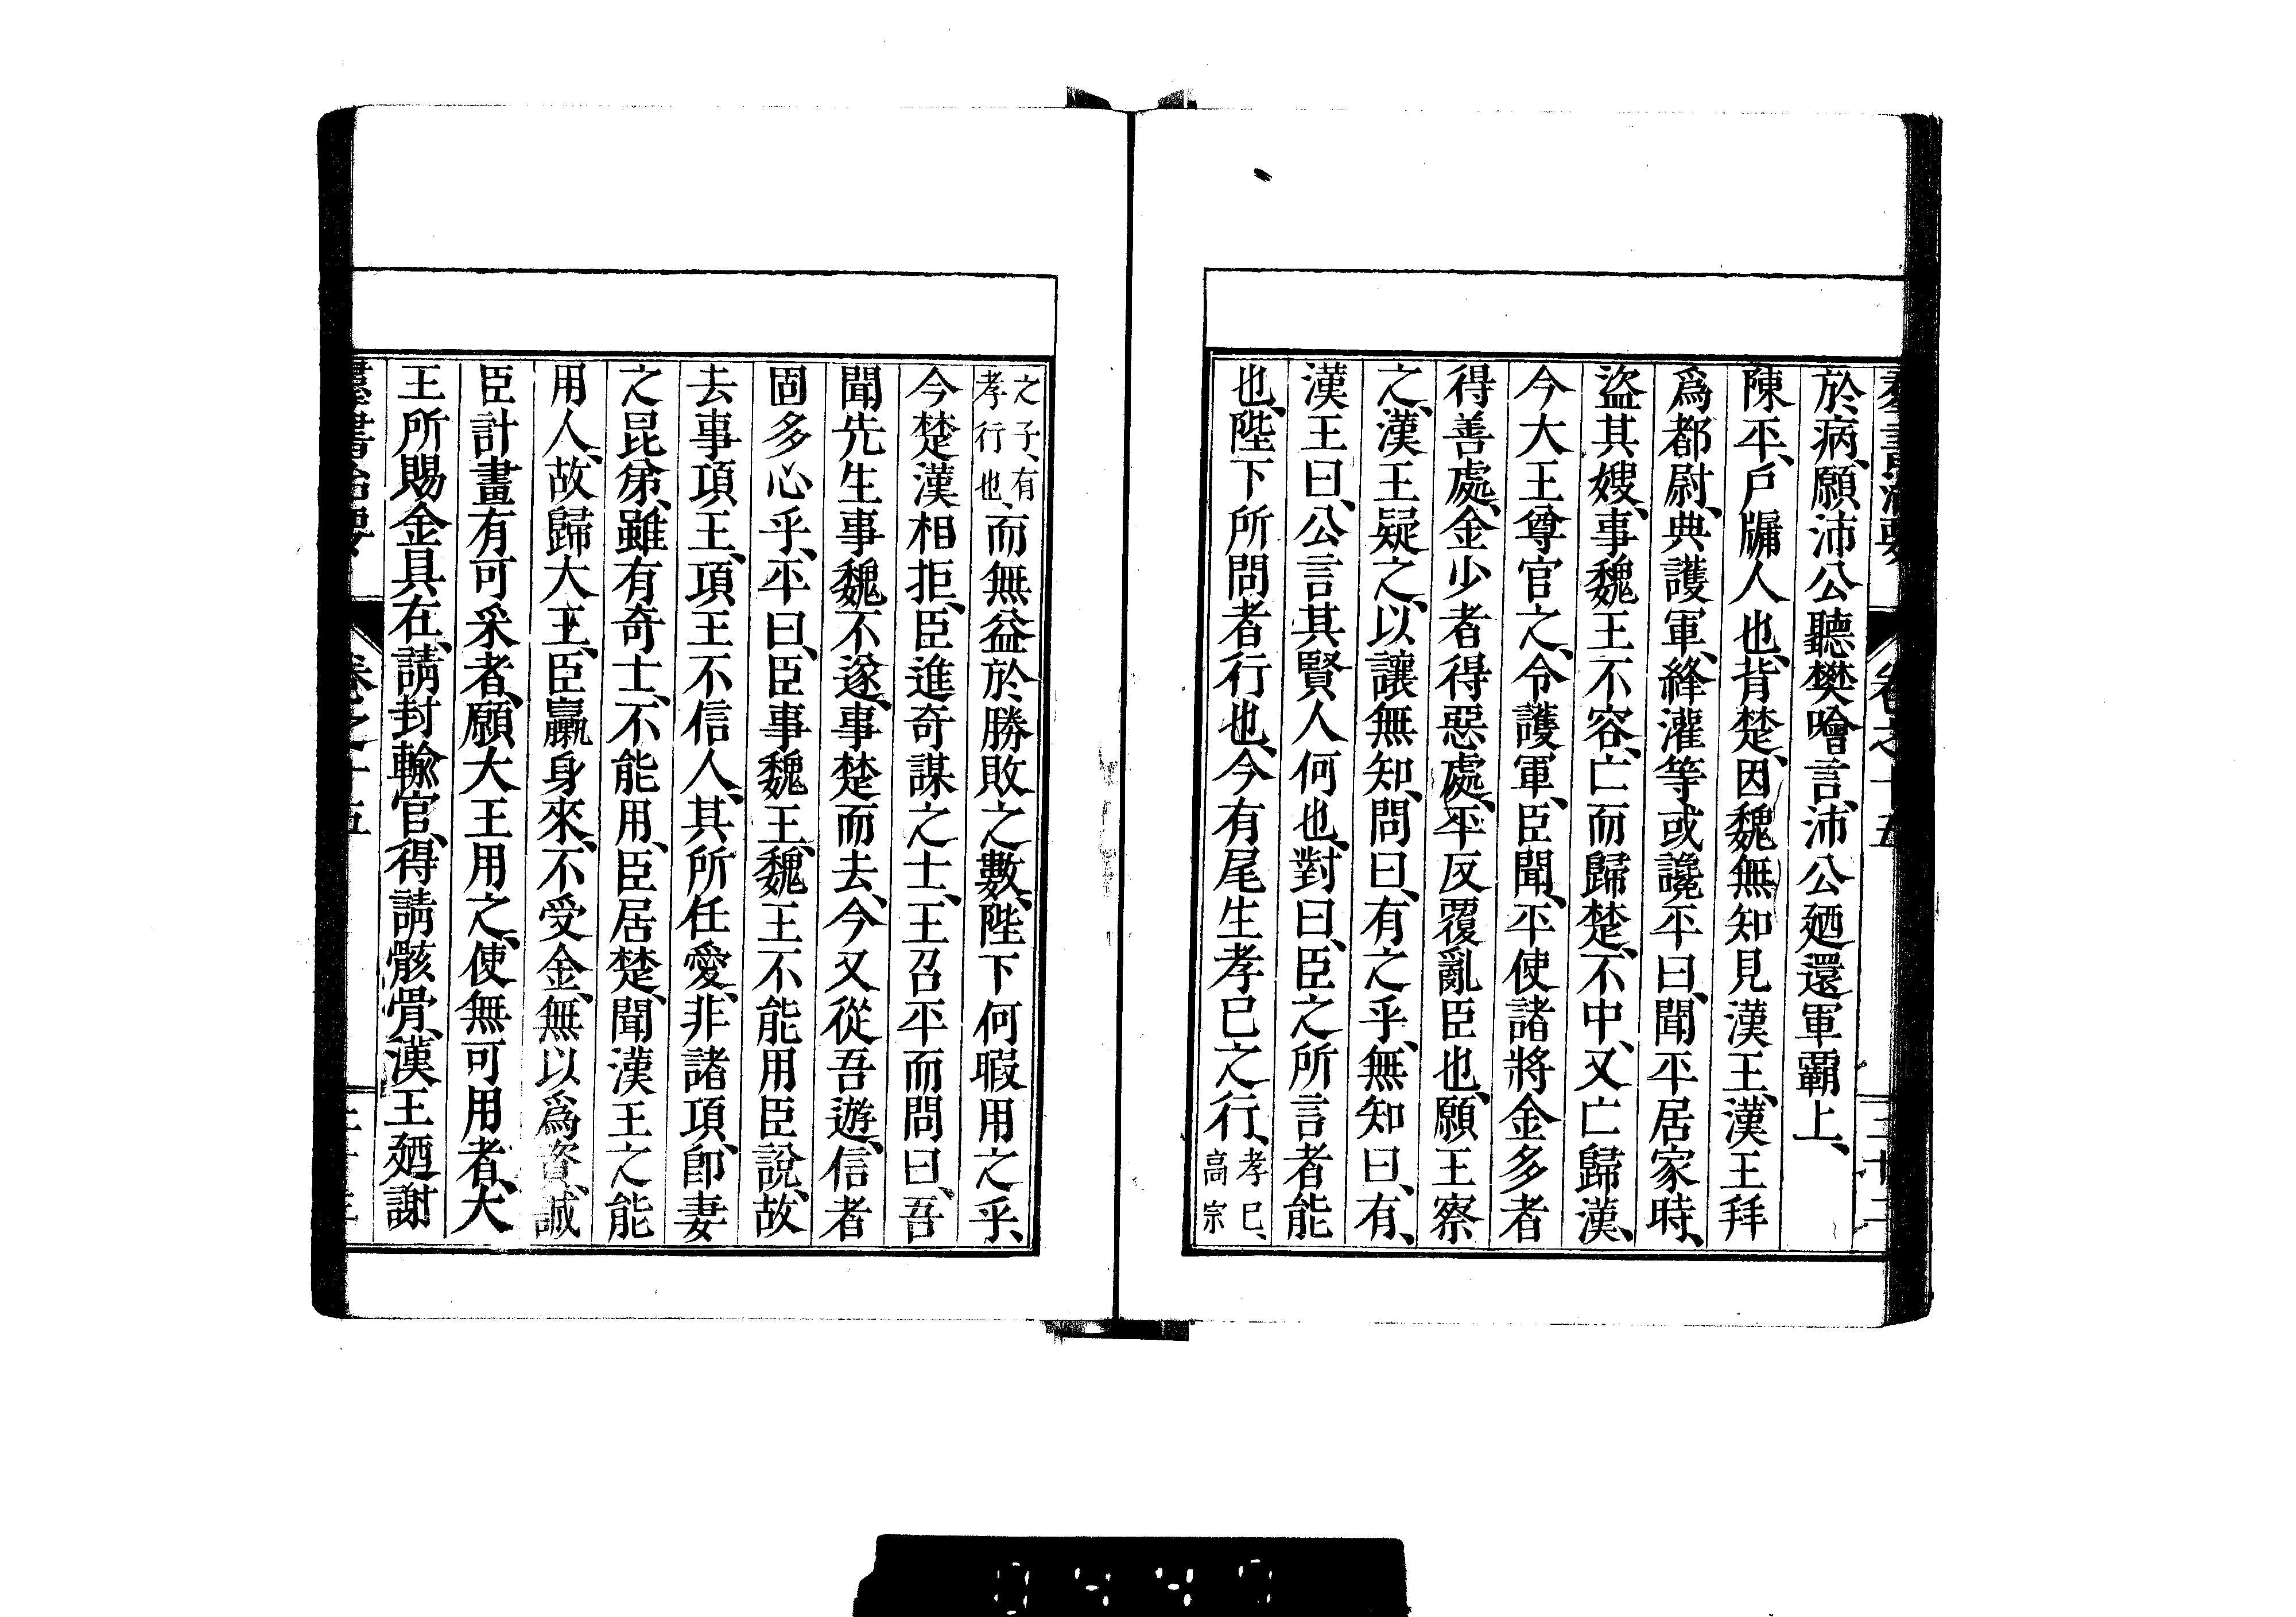 於病、願沛公聽樊噲言、沛公廼還軍霸上、
陳平、戶牖人也、背楚、因魏無知見漢王、漢王拜
爲都尉、典護軍、絳灌等或讒平曰、聞平居家時、
盜其嫂、事魏王不容、亡而歸楚、不中、又亡歸漢、
今大王尊官之、令護軍、臣聞、平使諸將金多者
得善處、金少者得惡處、平反覆亂臣也、願王察
之、漢王疑之、以讓無知、問曰、有之乎、無知曰、有、
漢王曰、公言其賢人何也、對曰、臣之所言者能
也、陛下所問者行也、今有尾生孝已之行、孝已、高宗
之子、有孝行也、而無益於勝敗之數、陛下何暇用之乎、
今楚漢相拒、臣進奇謀之士、王召平而問曰、吾
聞先生事魏不遂、事楚而去、今又從吾遊、信者
固多心乎、平曰、臣事魏王、魏王不能用臣說、故
去事項王、項王不信人、其所任愛、非諸項、卽妻
之昆弟、雖有奇士、不能用、臣居楚、聞漢王之能
用人、故歸大王、臣臝身來、不受金、無以爲資、誠
臣計畫有可采者、願大王用之、使無可用者、大
王所賜金具在、請封輸官、得請骸骨、漢王廼謝
羣書治要 卷之十五